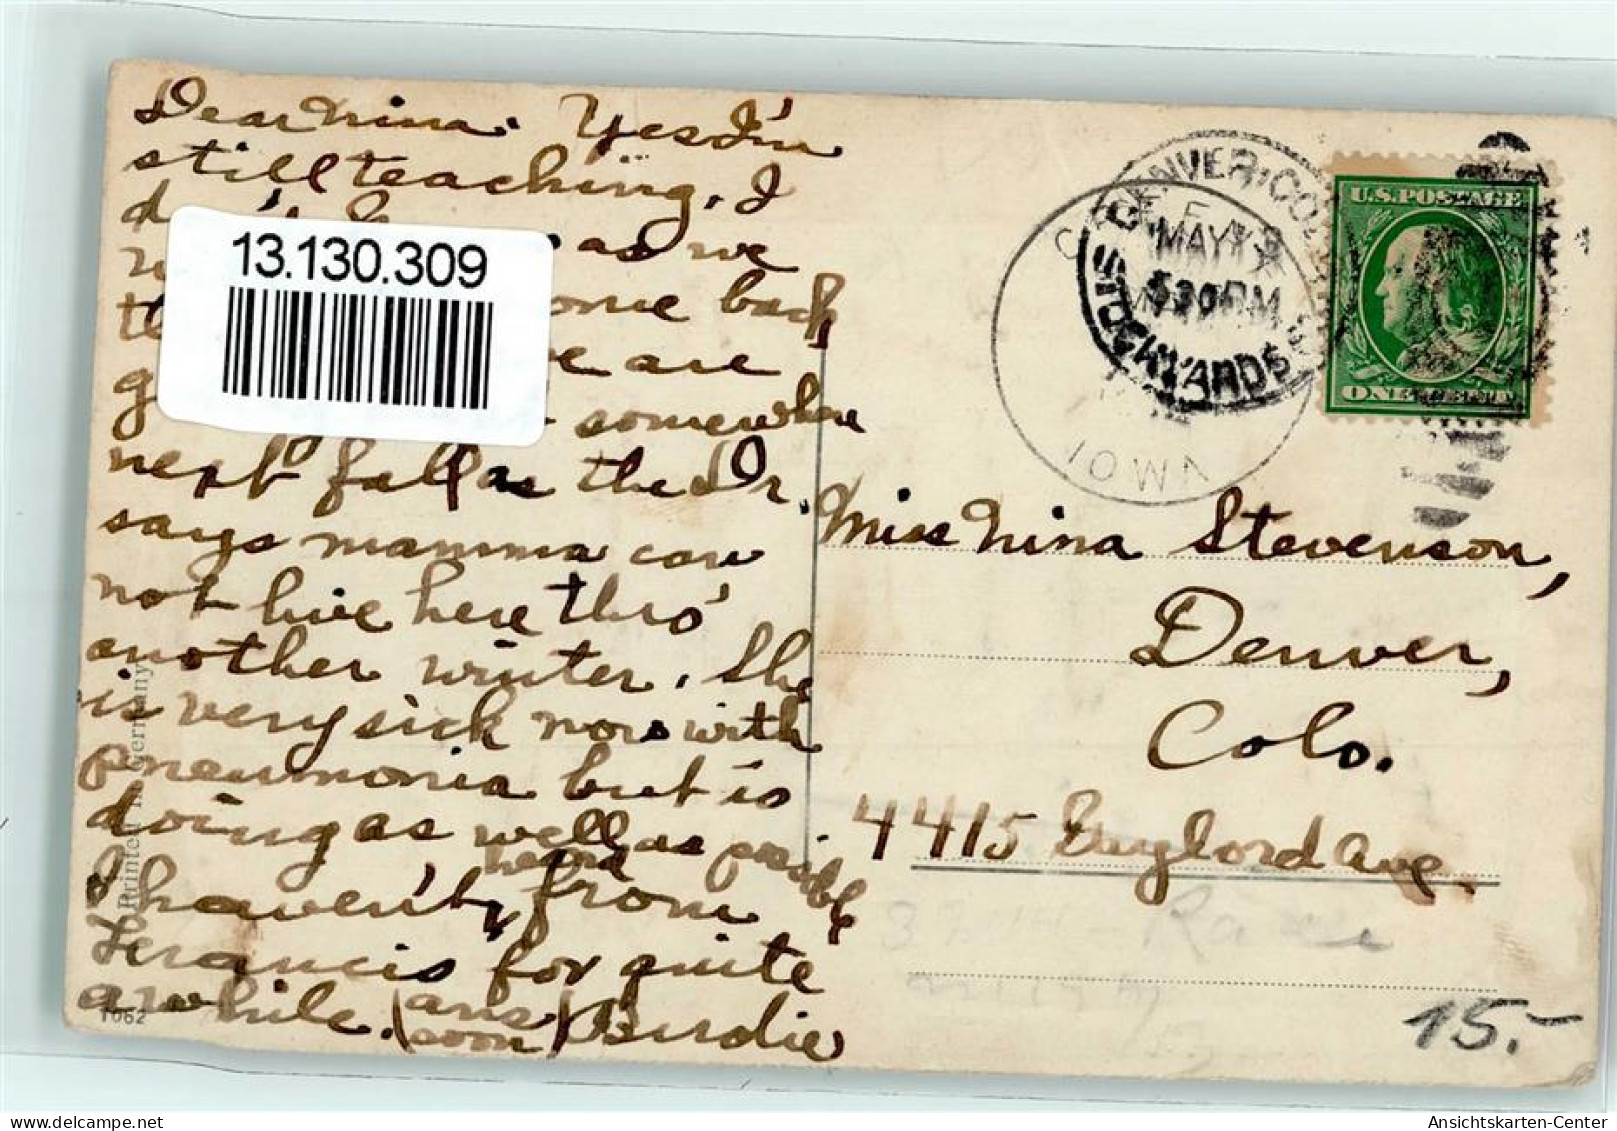 Dear Nina. Yes I'm
still teaching. I
as we
come back
are
somewhere
next fall as the Dr.
says mamma can
not live here thro'
another winter. She
is very sick now with
pneumonia but is
doing as well as possible
I haven't heard from
Francis for quite
awhile. (ans soon) Birdie
13.130.309
Printed in Germany
1062
DENVER. COLO.
MAY
530 PM
STOCKYARDS
IOWA
U.S. POSTAGE
ONE CENT
Miss Nina Stevenson,
Denver,
Colo.
4415 Gaylord Ave.
15.-
Ansichtskarten-Center